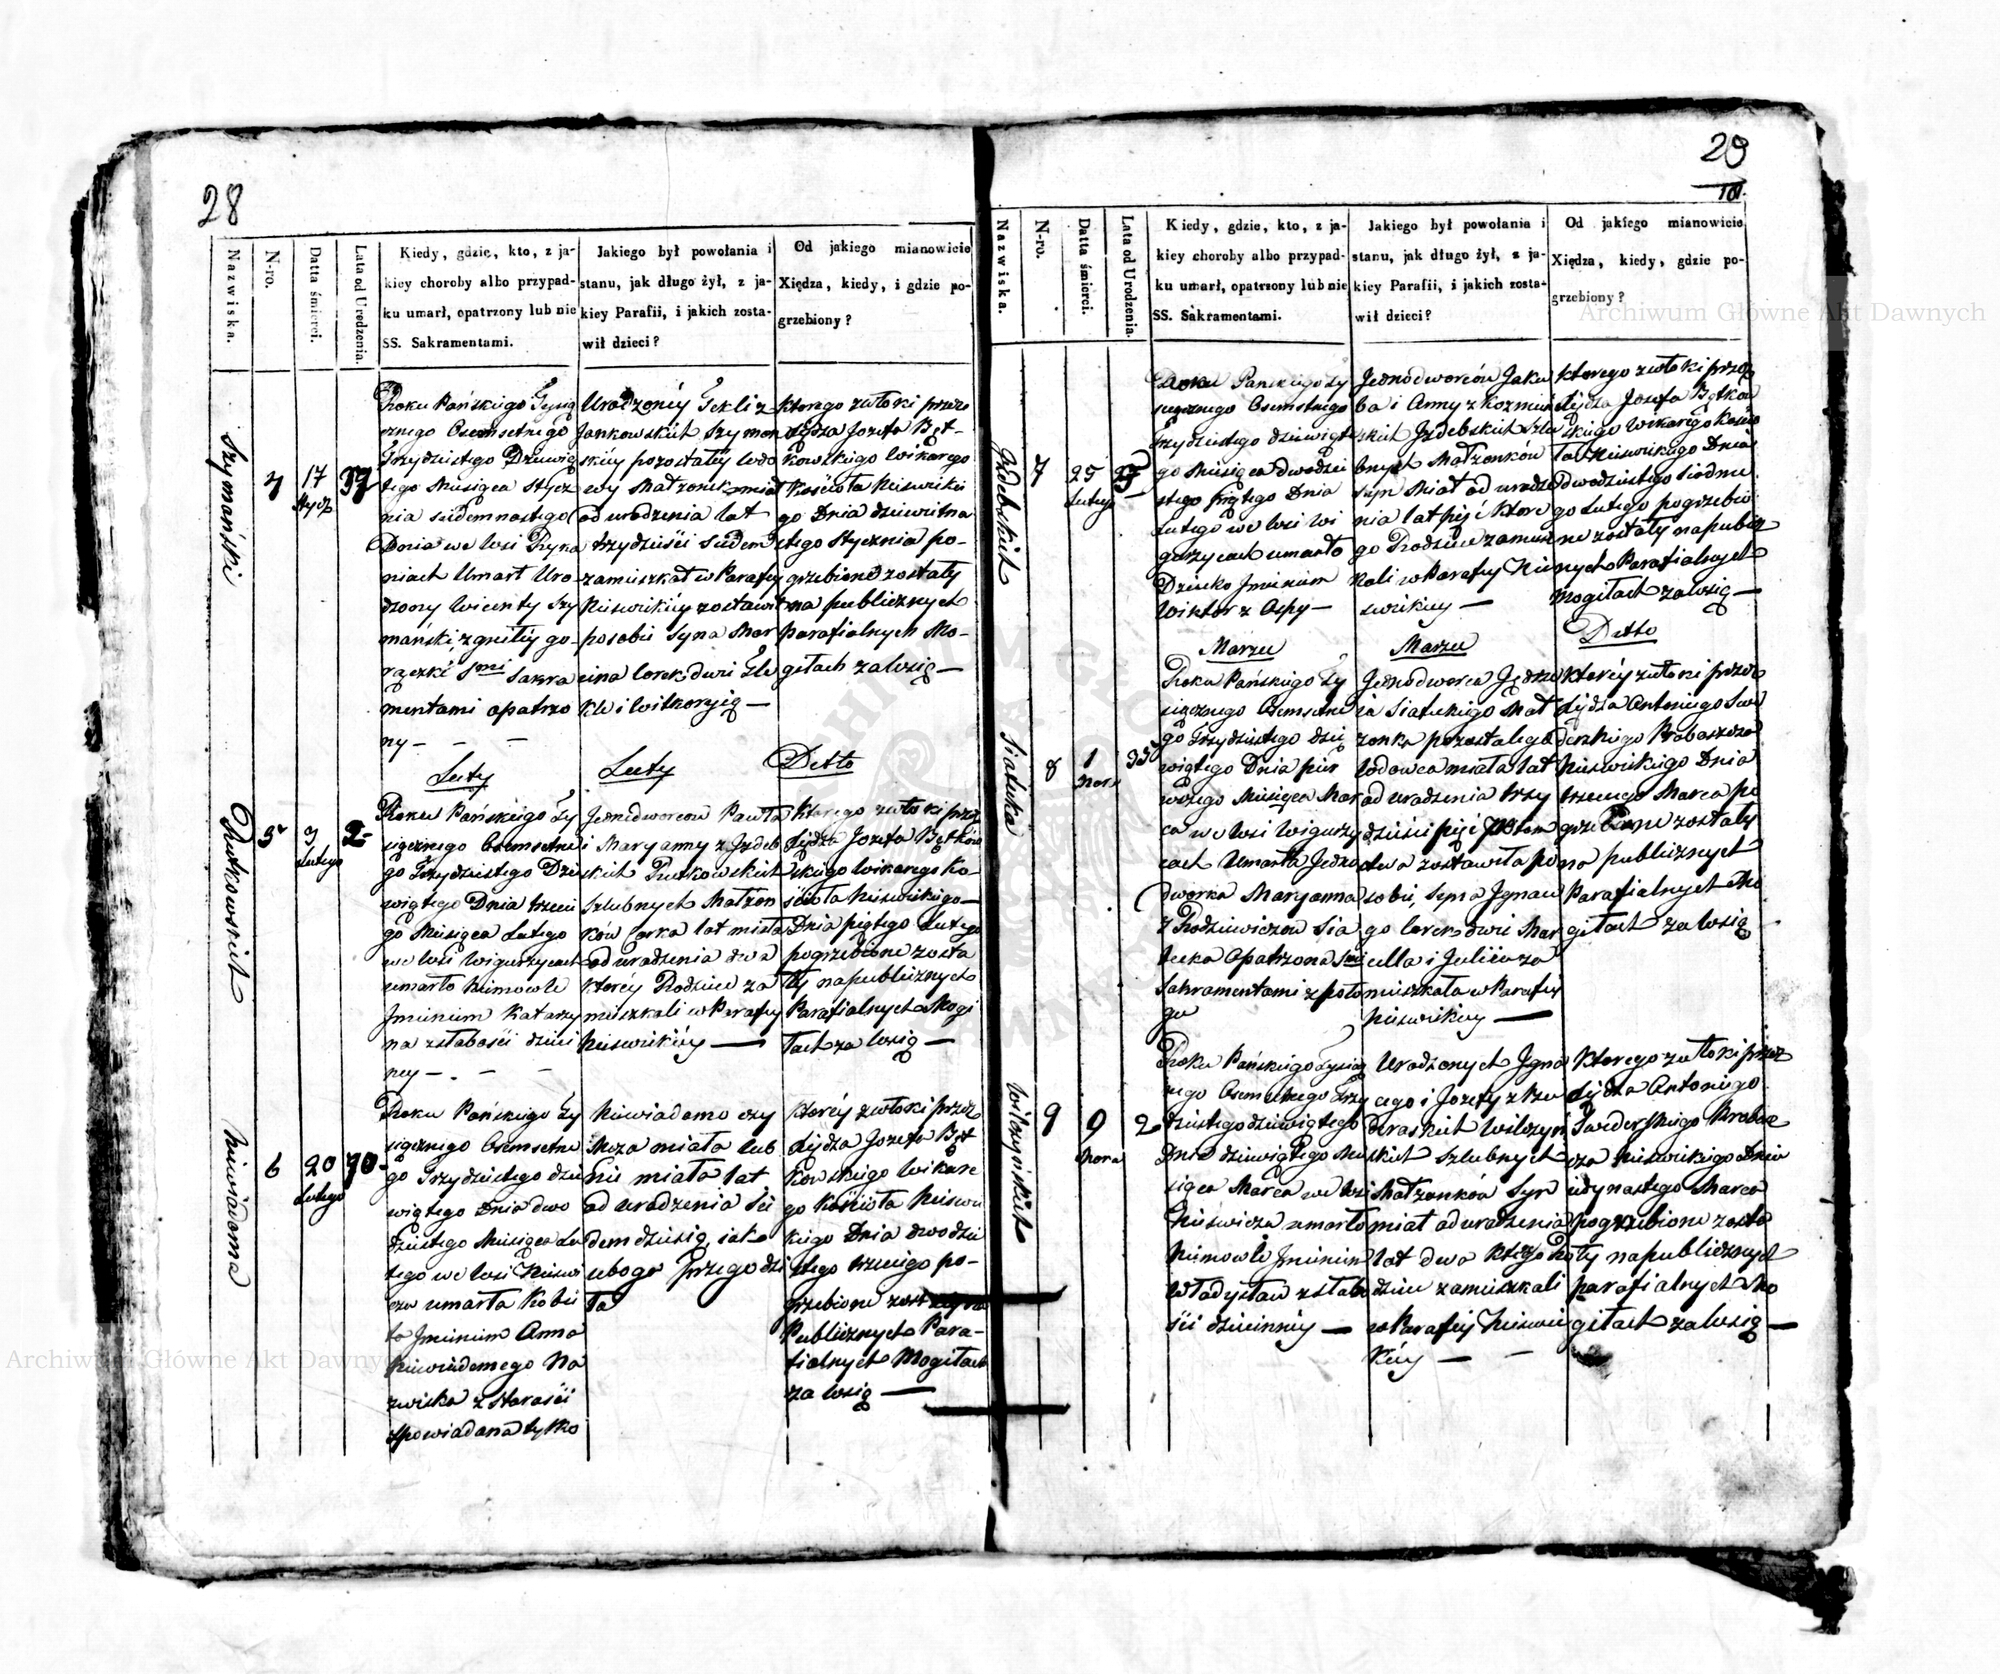 28
Nazwiska.
N-ro.
Datta śmierci.
Lata od Urodzenia.
Kiedy, gdzie, kto, z ja-
kiey choroby albo przypad-
ku umarł, opatrzony lub nie
SS. Sakramentami.
Jakiego był powołania i
stanu, jak długo żył, z ja-
kiey Parafii, i jakich zosta-
wił dzieci?
Od jakiego mianowicie
Xiędza, kiedy, i gdzie po-
grzebiony?
Szymański
4
17
Stycz
37
Roku Pańskiego Tysią
cznego Osemsetnego
Trzydziestego Dziewią
tego Miesiąca Stycz
nia siedemnastego
Dnia we Wsi
niach Umarł Uro
dzony Wicenty Szy
mański, z gniłéy go-
rączki Smi Sakra
mentami opatrzo
ny — — —
Urodzonéy Tekli z
Jankowskich Szyman
skiéy pozostałéy wdo
wy Małżonek miał
od urodzenia lat
trzydzieści siedem
zamieszkał w Parafiy
Nieswickiéy zostawił
po sobie Syna Mar
cina Corek dwie Te
klę i Wiktoryią —
ktorego zwłoki przez
Xiędza Jozefa Bęt-
kowskiego Wikarego
Kościoła Nieswickie
go Dnia dziewiętna
stego Stycznia po-
grzebione zostały
na publicznych
parafialnych Mo-
giłach za Wsią —
Luty
Luty
Detto
Rutkowskich
5
3
Lutego
2
Roku Pańskiego Ty
siącznego Osemsetne
go Trzydziestego Dzie
wiątego Dnia trzecie
go Miesiąca Lutego
we Wsi Wigurzycach
umarło Niemowle
Jmieniem Katarzy
na z słabości dzieci
ney — . — —
Jednodworcow Pawła
i Maryanny z Jzdeb
skich Rutkowskich
Szlubnych Małżon
kow Corka lat miała
od urodzenia dwa
ktoréy Rodzice za
mieszkali w Parafiy
Nieswickiéy —
ktorego zwłoki przez
Xiędza Jozefa Bętkow
skiego Wikarego Ko-
ścioła Nieswickiego —
Dnia piątego Lutego
pogrzebione zosta
ły na publicznych
Parafialnych Mogi
łach za Wsią —
Niewiadoma
6
20
Lutego
70
Roku Pańskiego Ty
siącznego Osemsetne
go Trzydziestego dzie
wiątego Dnia dwo
dziestego Miesiąca Lu
tego we Wsi Nieswi
czu umarła Kobie
ta Jmieniem Anna
Niewiadomego Na
zwiska z starości
spowiadana tylko
Niewiadomo czy
Męża miała lub
nie miała lat
od urodzenia sie
demdziesiąt jako
uboga
ktoréy zwłoki przez
Xiędza Jozefa Bęt
kowskiego Wikare
go Kościoła Nieswi
ckiego Dnia dwodzie
stego trzeciego po-
grzebione zostały na
Publicznych Para-
fialnych Mogiłach
za Wsią —
29
Nazwiska.
N-ro.
Datta śmierci.
Lata od Urodzenia.
Kiedy, gdzie, kto, z ja-
kiey choroby albo przypad-
ku umarł, opatrzony lub nie
SS. Sakramentami.
Jakiego był powołania i
stanu, jak długo żył, z ja-
kiey Parafii, i jakich zosta-
wił dzieci?
Od jakiego mianowicie
Xiędza, kiedy, gdzie po-
grzebiony?
Jzdebskich
7
25
Lutego
5
Roku Pańskiego Ty
siącznego Osemsetnego
Trzydziestego dziewiąte
go Miesiąca dwodzie
stego piątego Dnia
Lutego we Wsi Wi
gurzycach umarło
Dziecko Jmieniem
Wiktor z Ospy —
Jednodworców Jaku
ba i Anny z Kozmiń
skich Jzdebskich Szlu
bnych Małżonków
syn Miał od urodze
nia lat pięć ktore
go Rodzice zamiesz
kali w Parafiy Nie
swickiey —
ktorego zwłoki przez
Xiędza Jozefa Bętkow
skiego Wikarego Kościo
ła Nieswickiego Dnia
dwodziestego siodme
go Lutego pogrzebio
ne zostały na publicz
nych Parafialnych
Mogiłach za Wsią —
Marzec
Marzec
Detto
Siatecka
8
1
Marz
35
Roku Pańskiego Ty
siącznego Osemsetne
go Trzydziestego dzie
wiątego Dnia pier
wszego Miesiąca Mar
ca we Wsi Wigurzy
cach Umarła Jedno
dworka Maryanna
z Rodziewiczow Sia
tecka Opatrzona Smi
Sakramentami z poło
gu
Jednodworca Jędrze
ja Siateckiego Mał
żonka pozostałego
wdowca miała lat
od urodzenia trzy
dzieści pięć Potom
stwa zostawiła po
sobie, Syna Jgnace
go Corek dwie Mar
cella i Julija za
mieszkała w Parafiy
Nieswickiey —
Ktoréy zwłoki przez
Xiędza Antoniego Swi
derskiego Proboszcza
Nieswickiego Dnia
trzeciego Marca po
grzebione zostały
na publicznych
Parafialnych Mo
giłach za Wsią
Wilczyńskich
9
9
Marca
2
Roku Pańskiego Tysią
cznego Osemsetnego Trzy
dziestego dziewiątego
Dnia dziewiątego Mie
siąca Marca we Wsi
Nieswiczu umarło
Niemowle Jmieniem
Władysław z słabo
ści dziecinnéy —
Urodzonych Jgna
cego i Jozefy z
Wilczyń
skich Szlubnych
Małżonków Syn
miał od urodzenia
lat dwa ktorego Ro
dzice zamieszkali
w Parafiy Nieswic
kiéy — —
ktorego zwłoki przez
Xiędza Antoniego
Swiderskiego Probosz
cza Nieswickiego Dnia
jedynastego Marca
pogrzebione zosta
ły na publicznych
parafialnych Mo
giłach za Wsią —
Archiwum Główne Akt Dawnych
Archiwum Główne Akt Dawnych